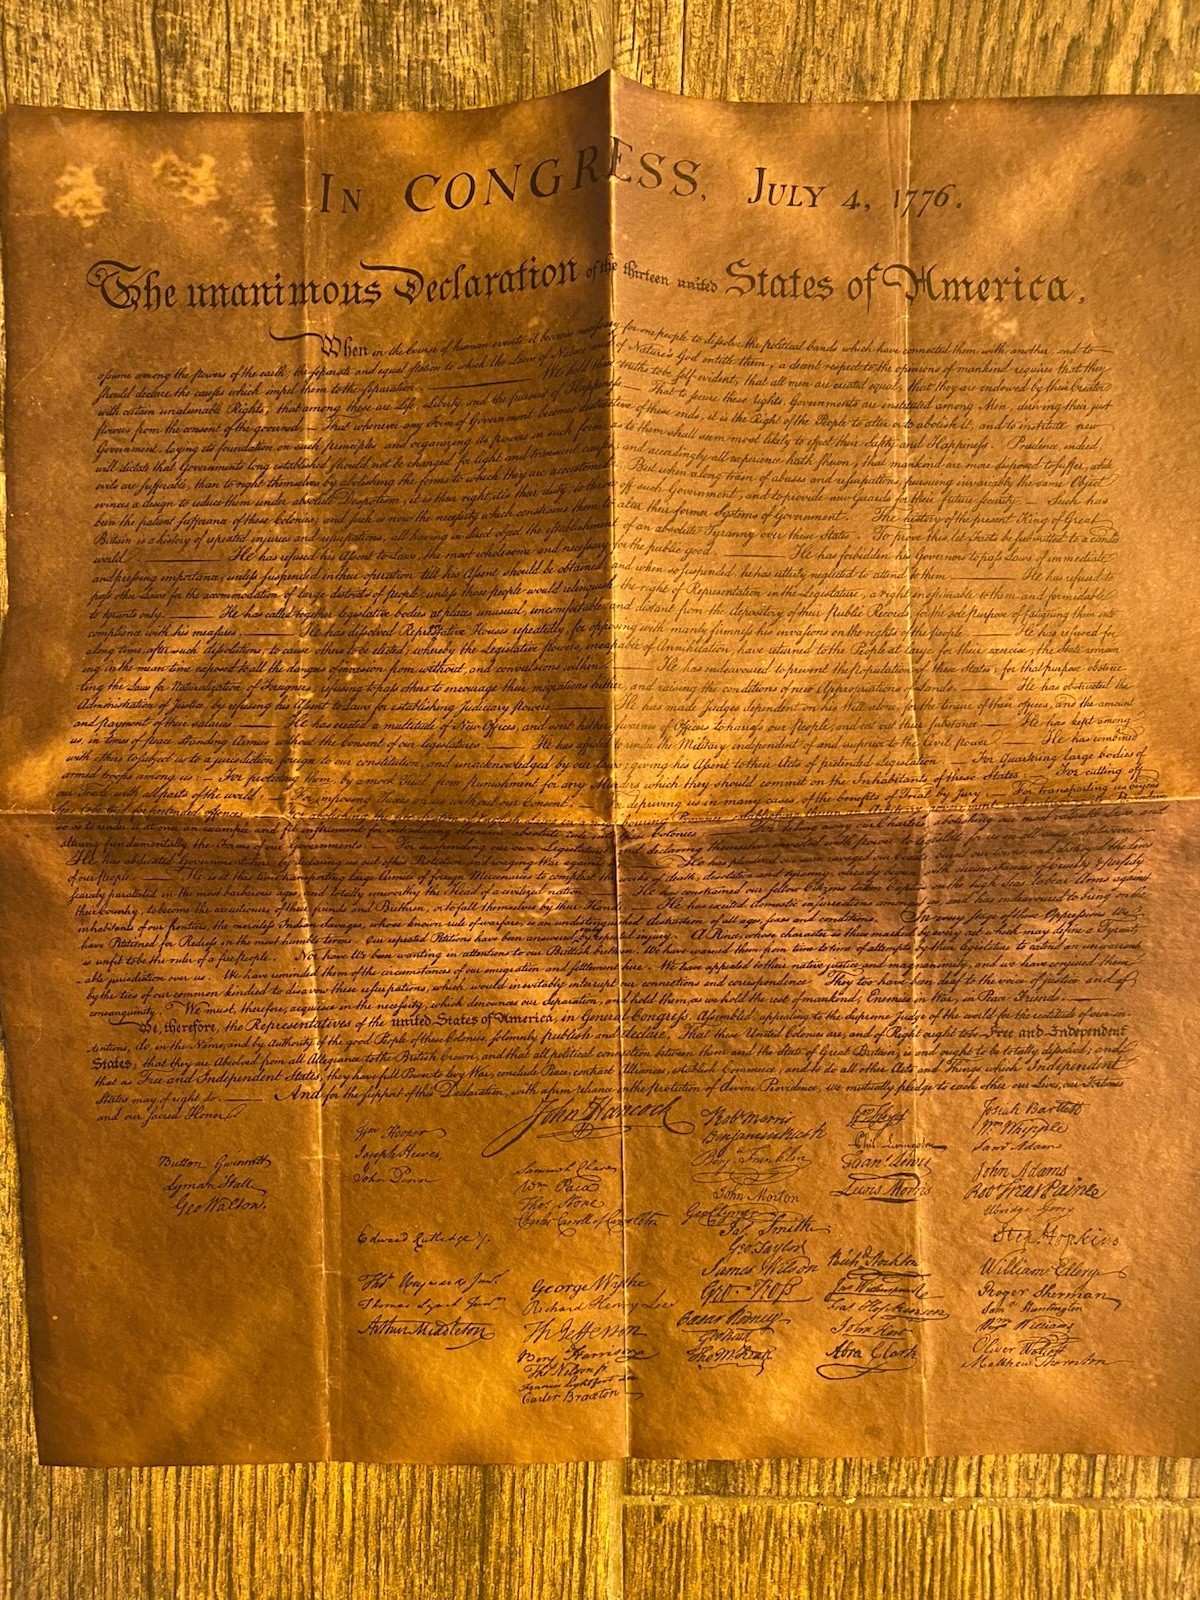 In CONGRESS, July 4, 1776.
The unanimous Declaration of the thirteen united States of America,
When in the Course of human events it becomes necessary for one people to dissolve the political bands which have connected them with another, and to
assume among the powers of the earth, the separate and equal station to which the Laws of Nature and of Nature's God entitle them, a decent respect to the opinions of mankind requires that they
should declare the causes which impel them to the separation. — We hold these truths to be self-evident, that all men are created equal, that they are endowed by their Creator
with certain unalienable Rights, that among these are Life, Liberty and the pursuit of Happiness — That to secure these rights, Governments are instituted among Men, deriving their just
powers from the consent of the governed, — That whenever any Form of Government becomes destructive of these ends, it is the Right of the People to alter or to abolish it, and to institute new
Government, laying its foundation on such principles and organizing its powers in such form, as to them shall seem most likely to effect their Safety and Happiness. Prudence, indeed,
will dictate that Governments long established should not be changed for light and transient causes; and accordingly all experience hath shewn, that mankind are more disposed to suffer, while
evils are sufferable, than to right themselves by abolishing the forms to which they are accustomed. But when a long train of abuses and usurpations, pursuing invariably the same Object
evinces a design to reduce them under absolute Despotism, it is their right, it is their duty, to throw off such Government, and to provide new Guards for their future security — Such has
been the patient sufferance of these Colonies; and such is now the necessity which constrains them to alter their former Systems of Government. The history of the present King of Great
Britain is a history of repeated injuries and usurpations, all having in direct object the establishment of an absolute Tyranny over these States. To prove this, let Facts be submitted to a candid
world. — He has refused his Assent to Laws, the most wholesome and necessary for the public good. — He has forbidden his Governors to pass Laws of immediate
and pressing importance, unless suspended in their operation till his Assent should be obtained; and when so suspended, he has utterly neglected to attend to them — He has refused to
pass other Laws for the accommodation of large districts of people, unless those people would relinquish the right of Representation in the Legislature, a right inestimable to them and formidable
to tyrants only. — He has called together legislative bodies at places unusual, uncomfortable, and distant from the depository of their Public Records, for the sole purpose of fatiguing them into
compliance with his measures. — He has dissolved Representative Houses repeatedly, for opposing with manly firmness his invasions on the rights of the people. — He has refused for
a long time, after such dissolutions, to cause others to be elected; whereby the Legislative powers, incapable of Annihilation, have returned to the People at large for their exercise; the State remain
ing in the mean time exposed to all the dangers of invasion from without, and convulsions within. — He has endeavoured to prevent the Population of these States; for that purpose obstruc
ting the Laws for Naturalization of Foreigners; refusing to pass others to encourage their migrations hither, and raising the conditions of new Appropriations of Lands. — He has obstructed the
Administration of Justice, by refusing his Assent to Laws for establishing Judiciary powers — He has made Judges dependent on his Will alone, for the tenure of their offices, and the amount
and payment of their salaries. — He has erected a multitude of New Offices, and sent hither swarms of Officers to harass our people, and eat out their substance — He has kept among
us, in times of peace, Standing Armies without the Consent of our legislatures — He has affected to render the Military independent of and superior to the Civil power — He has combined
with others to subject us to a jurisdiction foreign to our constitution, and unacknowledged by our laws; giving his Assent to their Acts of pretended Legislation: — For Quartering large bodies of
armed troops among us: — For protecting them, by a mock Trial, from punishment for any Murders which they should commit on the Inhabitants of these States: — For cutting off
our Trade with all parts of the world: — For imposing Taxes on us without our Consent: — For depriving us in many cases, of the benefits of Trial by Jury: — For transporting us beyond
Seas to be tried for pretended offences — For abolishing the free System of English Laws in a neighbouring Province, establishing therein an Arbitrary government,
so as to render it at once an example and fit instrument for introducing the same absolute rule into these Colonies — For taking away our Charters, abolishing our most valuable Laws, and
altering fundamentally the Forms of our Governments: — For suspending our own Legislatures, and declaring themselves invested with power to legislate for us in all cases whatsoever. —
He has abdicated Government here, by declaring us out of his Protection and waging War against us. — He has plundered our seas, ravaged our Coasts, burnt our towns, and destroyed the lives
of our people. — He is at this time transporting large Armies of foreign Mercenaries to compleat the works of death, desolation and tyranny, already begun with circumstances of Cruelty & perfidy
scarcely paralleled in the most barbarous ages, and totally unworthy the Head of a civilized nation. — He has constrained our fellow Citizens taken Captive on the high Seas to bear Arms against
their Country, to become the executioners of their friends and Brethren, or to fall themselves by their Hands. — He has excited domestic insurrections amongst us, and has endeavoured to bring on the
inhabitants of our frontiers, the merciless Indian Savages, whose known rule of warfare, is an undistinguished destruction of all ages, sexes and conditions. In every stage of these Oppressions We
have Petitioned for Redress in the most humble terms: Our repeated Petitions have been answered by repeated injury. A Prince, whose character is thus marked by every act which may define a Tyrant,
is unfit to be the ruler of a free people. Nor have We been wanting in attentions to our Brittish brethren. We have warned them from time to time of attempts by their legislature to extend an unwarrant
-able jurisdiction over us. We have reminded them of the circumstances of our emigration and settlement here. We have appealed to their native justice and magnanimity, and we have conjured them
by the ties of our common kindred to disavow these usurpations, which, would inevitably interrupt our connections and correspondence They too have been deaf to the voice of justice and of
consanguinity. We must, therefore, acquiesce in the necessity, which denounces our Separation, and hold them, as we hold the rest of mankind, Enemies in War, in Peace Friends. —
We, therefore, the Representatives of the united States of America, in General Congress, Assembled, appealing to the Supreme Judge of the world for the rectitude of our in-
tentions, do, in the Name, and by Authority of the good People of these Colonies, solemnly publish and declare, That these United Colonies are, and of Right ought to be Free and Independent
States; that they are Absolved from all Allegiance to the British Crown, and that all political connection between them and the State of Great Britain, is and ought to be totally dissolved; and
that as Free and Independent States, they have full Power to levy War, conclude Peace, contract Alliances, establish Commerce, and to do all other Acts and Things which Independent
States may of right do. — And for the support of this Declaration, with a firm reliance on the protection of divine Providence, we mutually pledge to each other our Lives, our Fortunes
and our sacred Honor
Button Gwinnett
Lyman Hall
Geo Walton.
Wm Hooper
Joseph Hewes,
John Penn
Edward Rutledge /.
Thos. Heyward Junr.
Thomas Lynch Junr.
Arthur Middleton
John Hancock
Samuel Chase
Wm. Paca
Thos. Stone
Charles Carroll of Carrollton
George Wythe
Richard Henry Lee
Th Jefferson
Benj Harrison
Thos Nelson jr.
Francis Lightfoot Lee
Carter Braxton
Robt Morris
Benjamin Rush
Benj. Franklin
John Morton
Geo Clymer
Jas. Smith
Geo. Taylor
James Wilson
Geo. Ross
Caesar Rodney
Geo Read
Tho M:Kean
Wm Floyd
Phil. Livingston
Frans. Lewis
Lewis Morris
Richd. Stockton
Jno Witherspoon
Fras. Hopkinson
John Hart
Abra Clark
Josiah Bartlett
Wm. Whipple
Saml Adams
John Adams
Robt Treat Paine
Elbridge Gerry
Step. Hopkins
William Ellery
Roger Sherman
Saml Huntington
Wm. Williams
Oliver Wolcott
Matthew Thornton